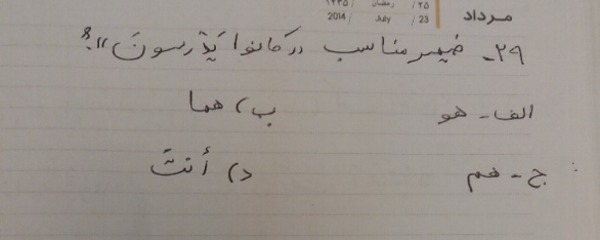 ۱۴۳۵ / رمضان / ۲۵
2014 / July / 23
مـرداد
۲۹ـ ضمیر مناسب «کانوا یَدْرسونَ»؟
الف ـ هو ب) هما
ج ـ هم د) أنتَ